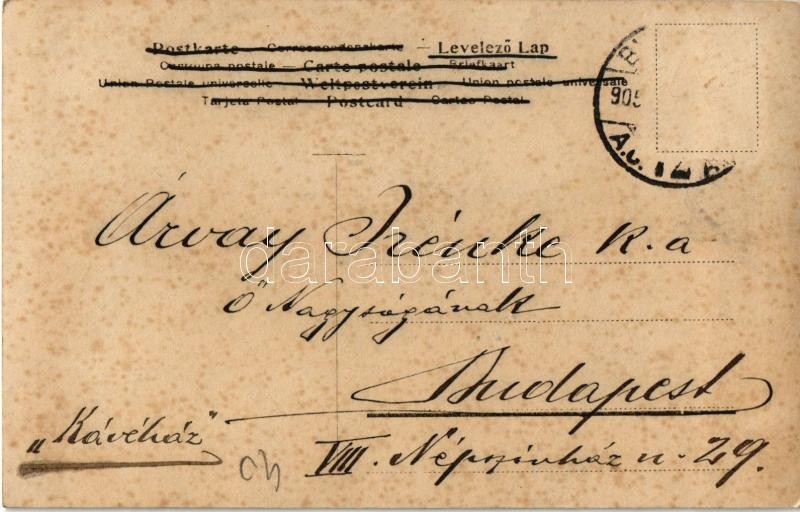 Postkarte – Correspondenzkarte – Levelező Lap
Carte postale – Briefkaart
Union Postale universelle Weltpostverein Union postale universale
Tarjeta Postal Postcard Cartao Postal
905
Árvay Irénke k. a
darabanth
Ő Nagyságának
Budapest
"Kávéház"
VIII. Népszinház u. 29.